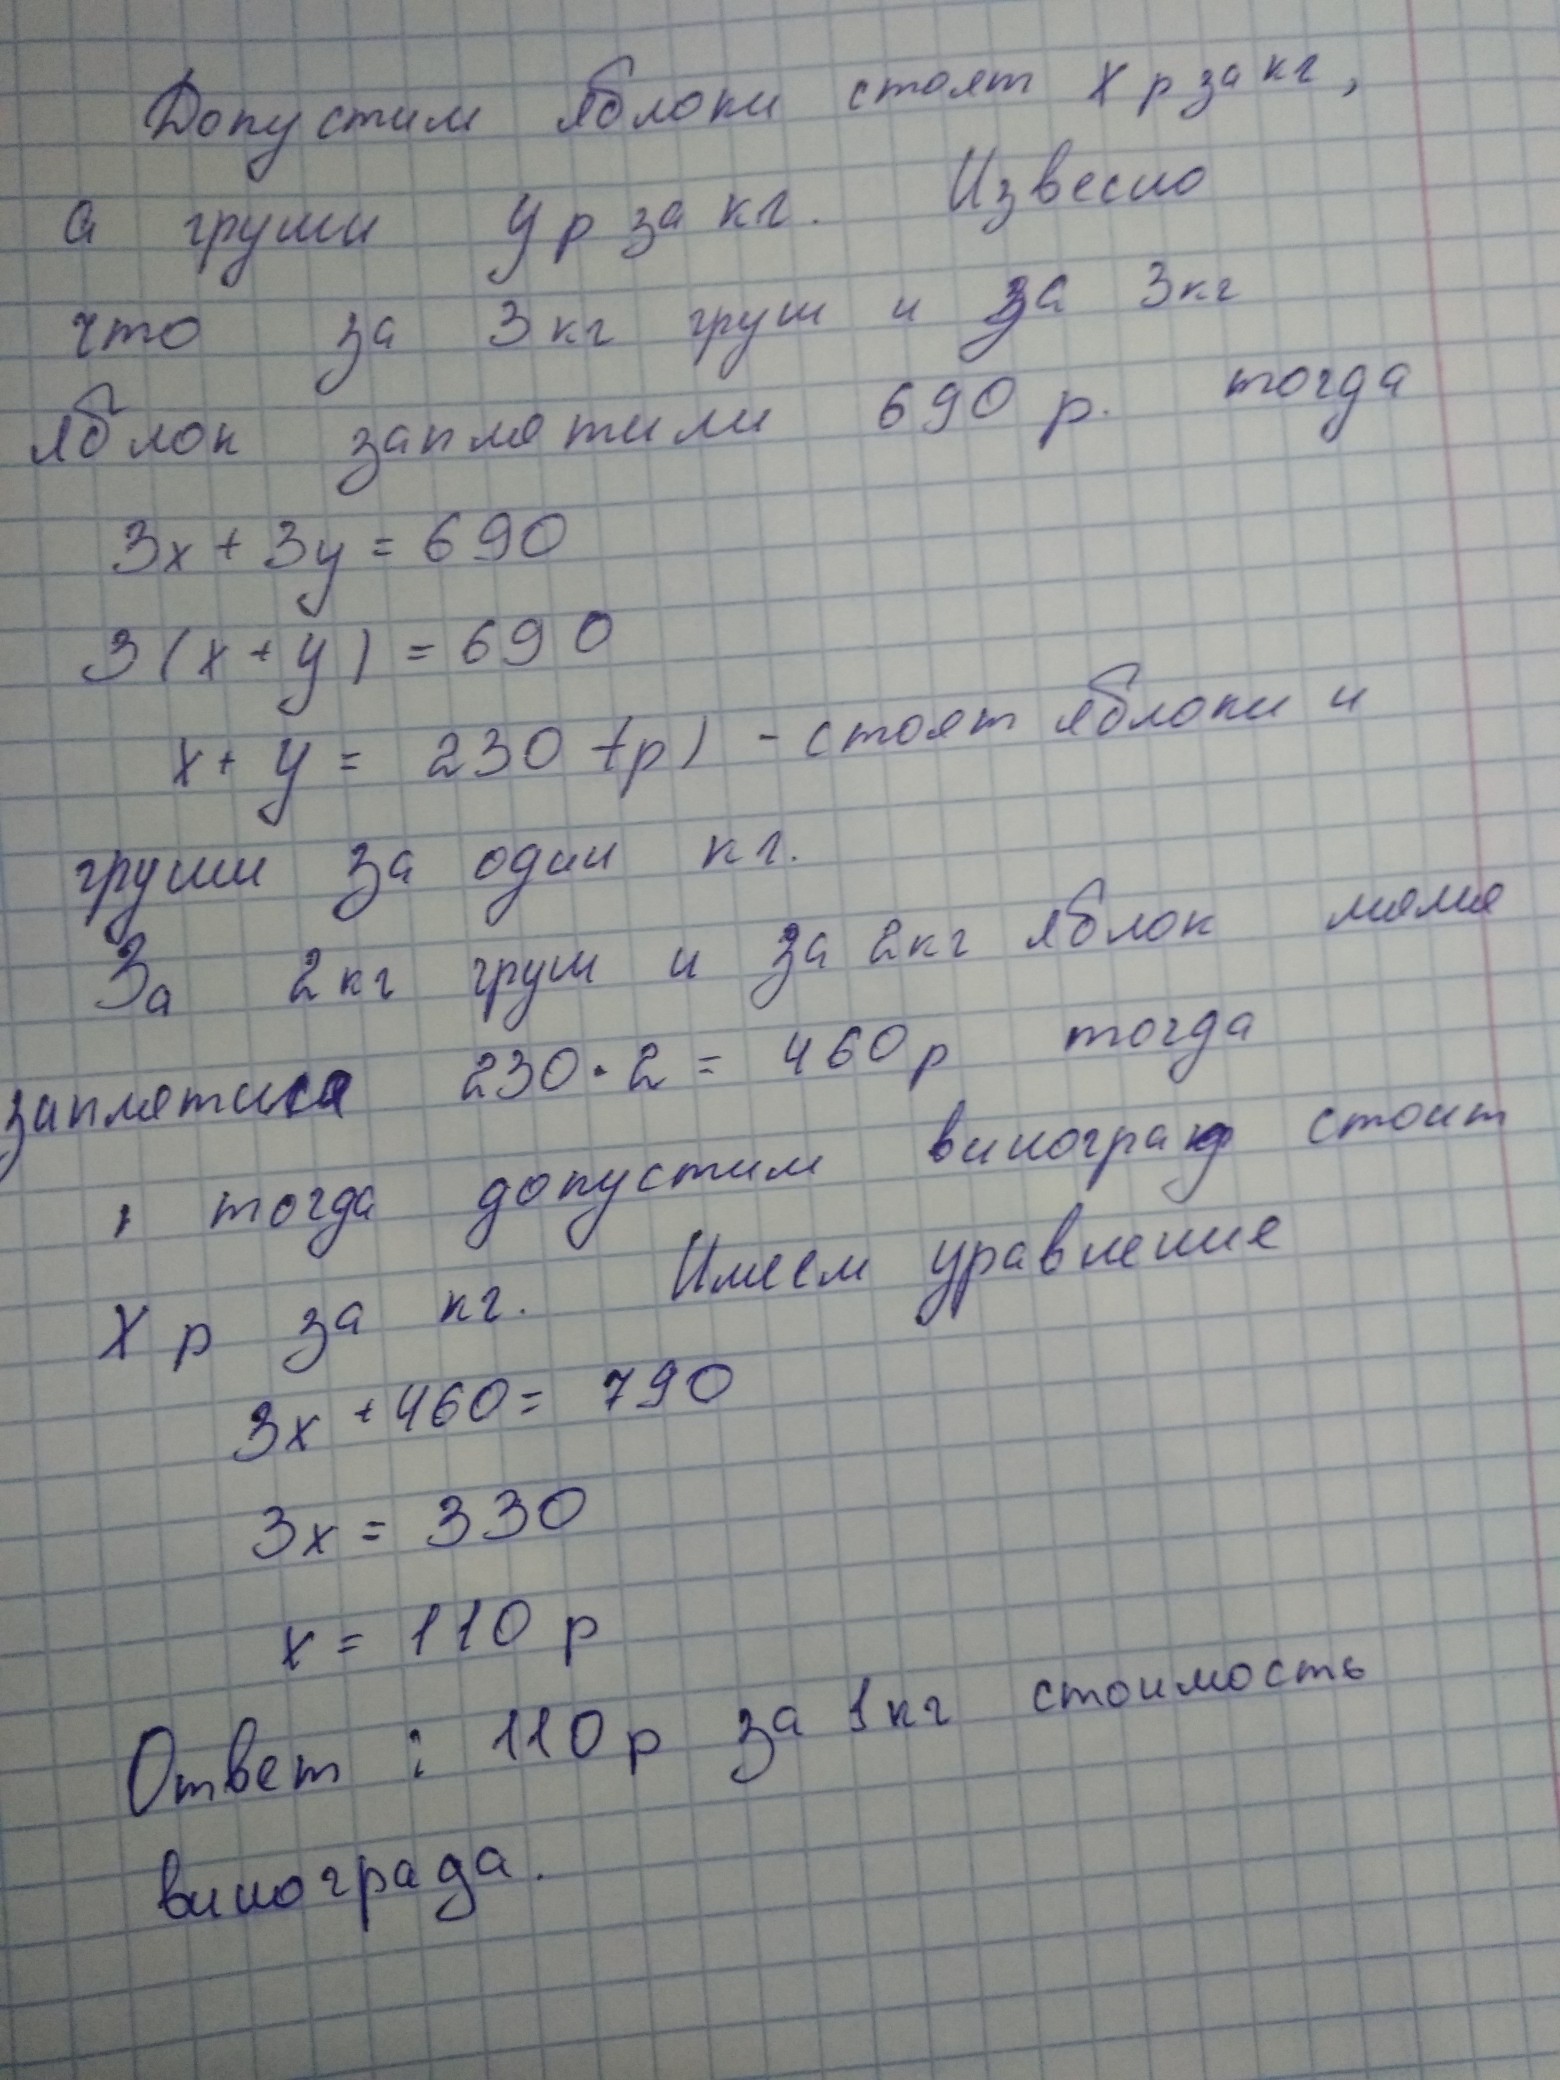 Допустим яблоки стоят х р за кг,
а груши у р за кг. Извесно
что за 3 кг груш и за 3 кг
яблок заплатили 690 р. тогда
3х + 3у = 690
3(х + у) = 690
х + у = 230 (р) - стоят яблоки и
груши за один кг.
За 2 кг груш и за 2 кг яблок мама
заплатила 230 · 2 = 460 р тогда
, тогда допустим виноград стоит
Х р за кг. Имеем уравнение
3х + 460 = 790
3х = 330
х = 110 р
Ответ : 110 р за 1 кг стоимость
винограда.